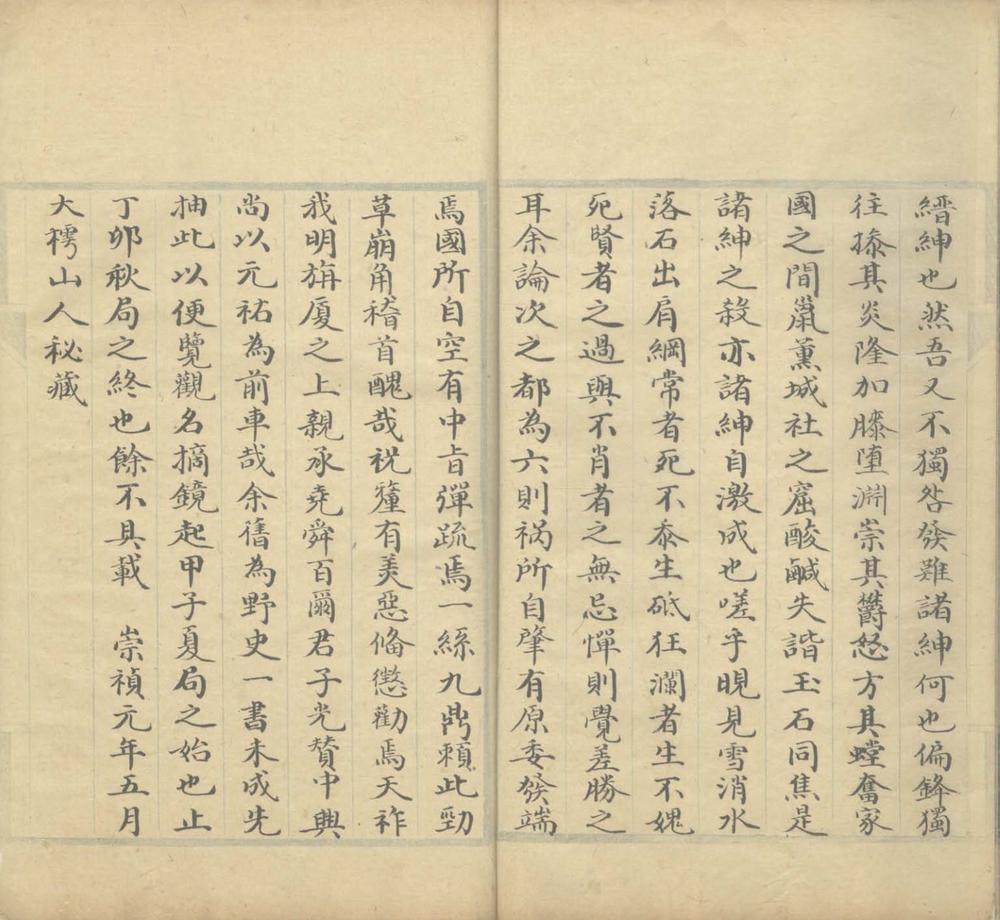 縉紳也然吾又不獨咎發難諸紳何也偏鋒獨
往搽其炎隆加膝墮淵崇其欝怒方其螳奮家
國之間鼠薰城社之窟酸醎失諧玉石同焦是
諸紳之殺亦諸紳自激成也嗟乎晛見雪消水
落石出肩綱常者死不忝生砥狂瀾者生不媿
死賢者之過與不肖者之無忌憚則覺差勝之
耳余論次之都為六則祸所自肇有原委發端
焉國所自空有中旨彈疏焉一綵九鼎頼此勁
草崩角稽首醜哉祝釐有美惡俻懲勸焉天祚
我明旃厦之上親承堯舜百爾君子光贊中興
尚以元祐為前車哉余舊為野史一書未成先
抽此以便覽觀名摘鏡起甲子夏局之始也止
丁卯秋局之終也餘不具載 崇禎元年五月
大樗山人秘藏